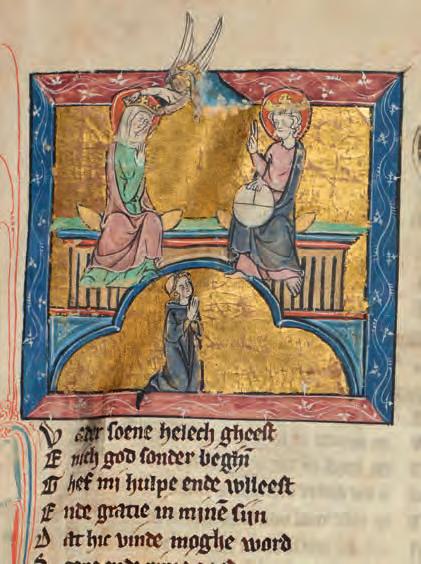 V ader soene helech gheest
E nich god sonder beghī
G hef mi hulpe ende vlleest
E nde gracie in minē sin
D at hic vinde moghe word